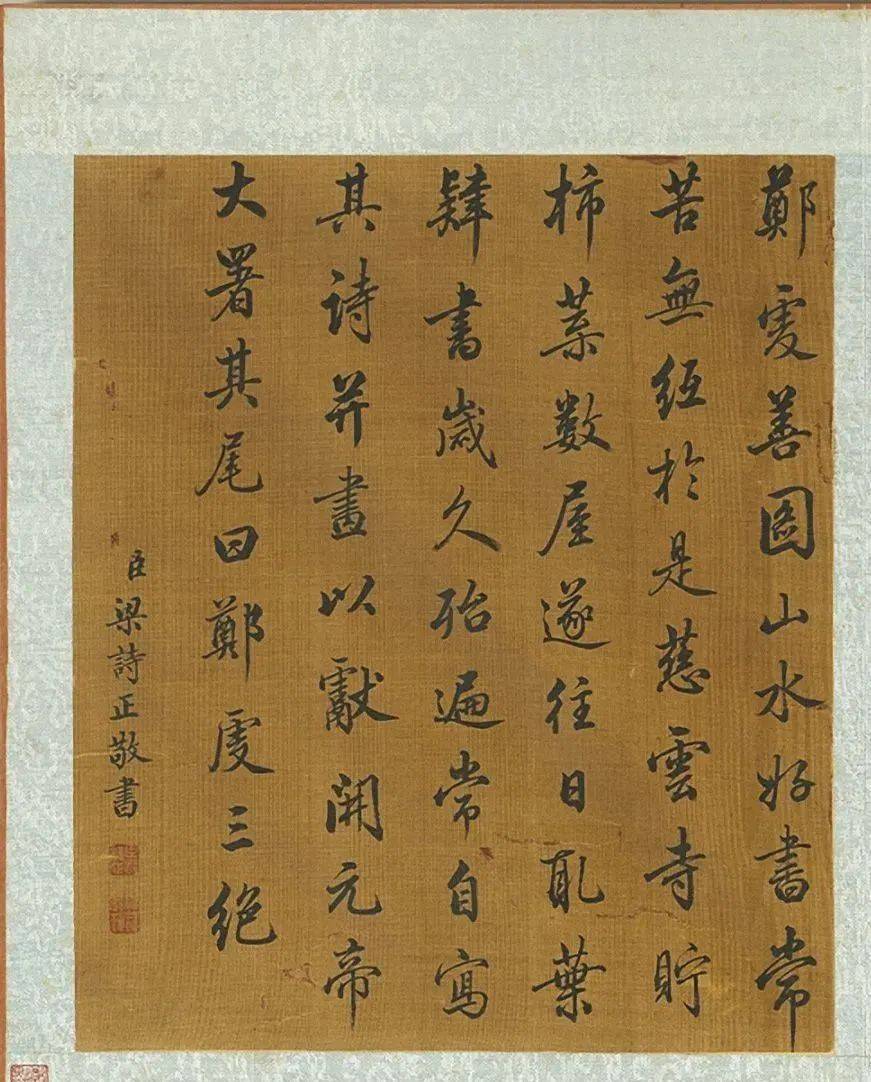 鄭虔善圖山水好書常
苦無紙於是慈雲寺貯
柿葉數屋遂往日取葉
肄書歲久殆遍常自寫
其詩并畫以獻開元帝
大署其尾曰鄭虔三絕
臣梁詩正敬書